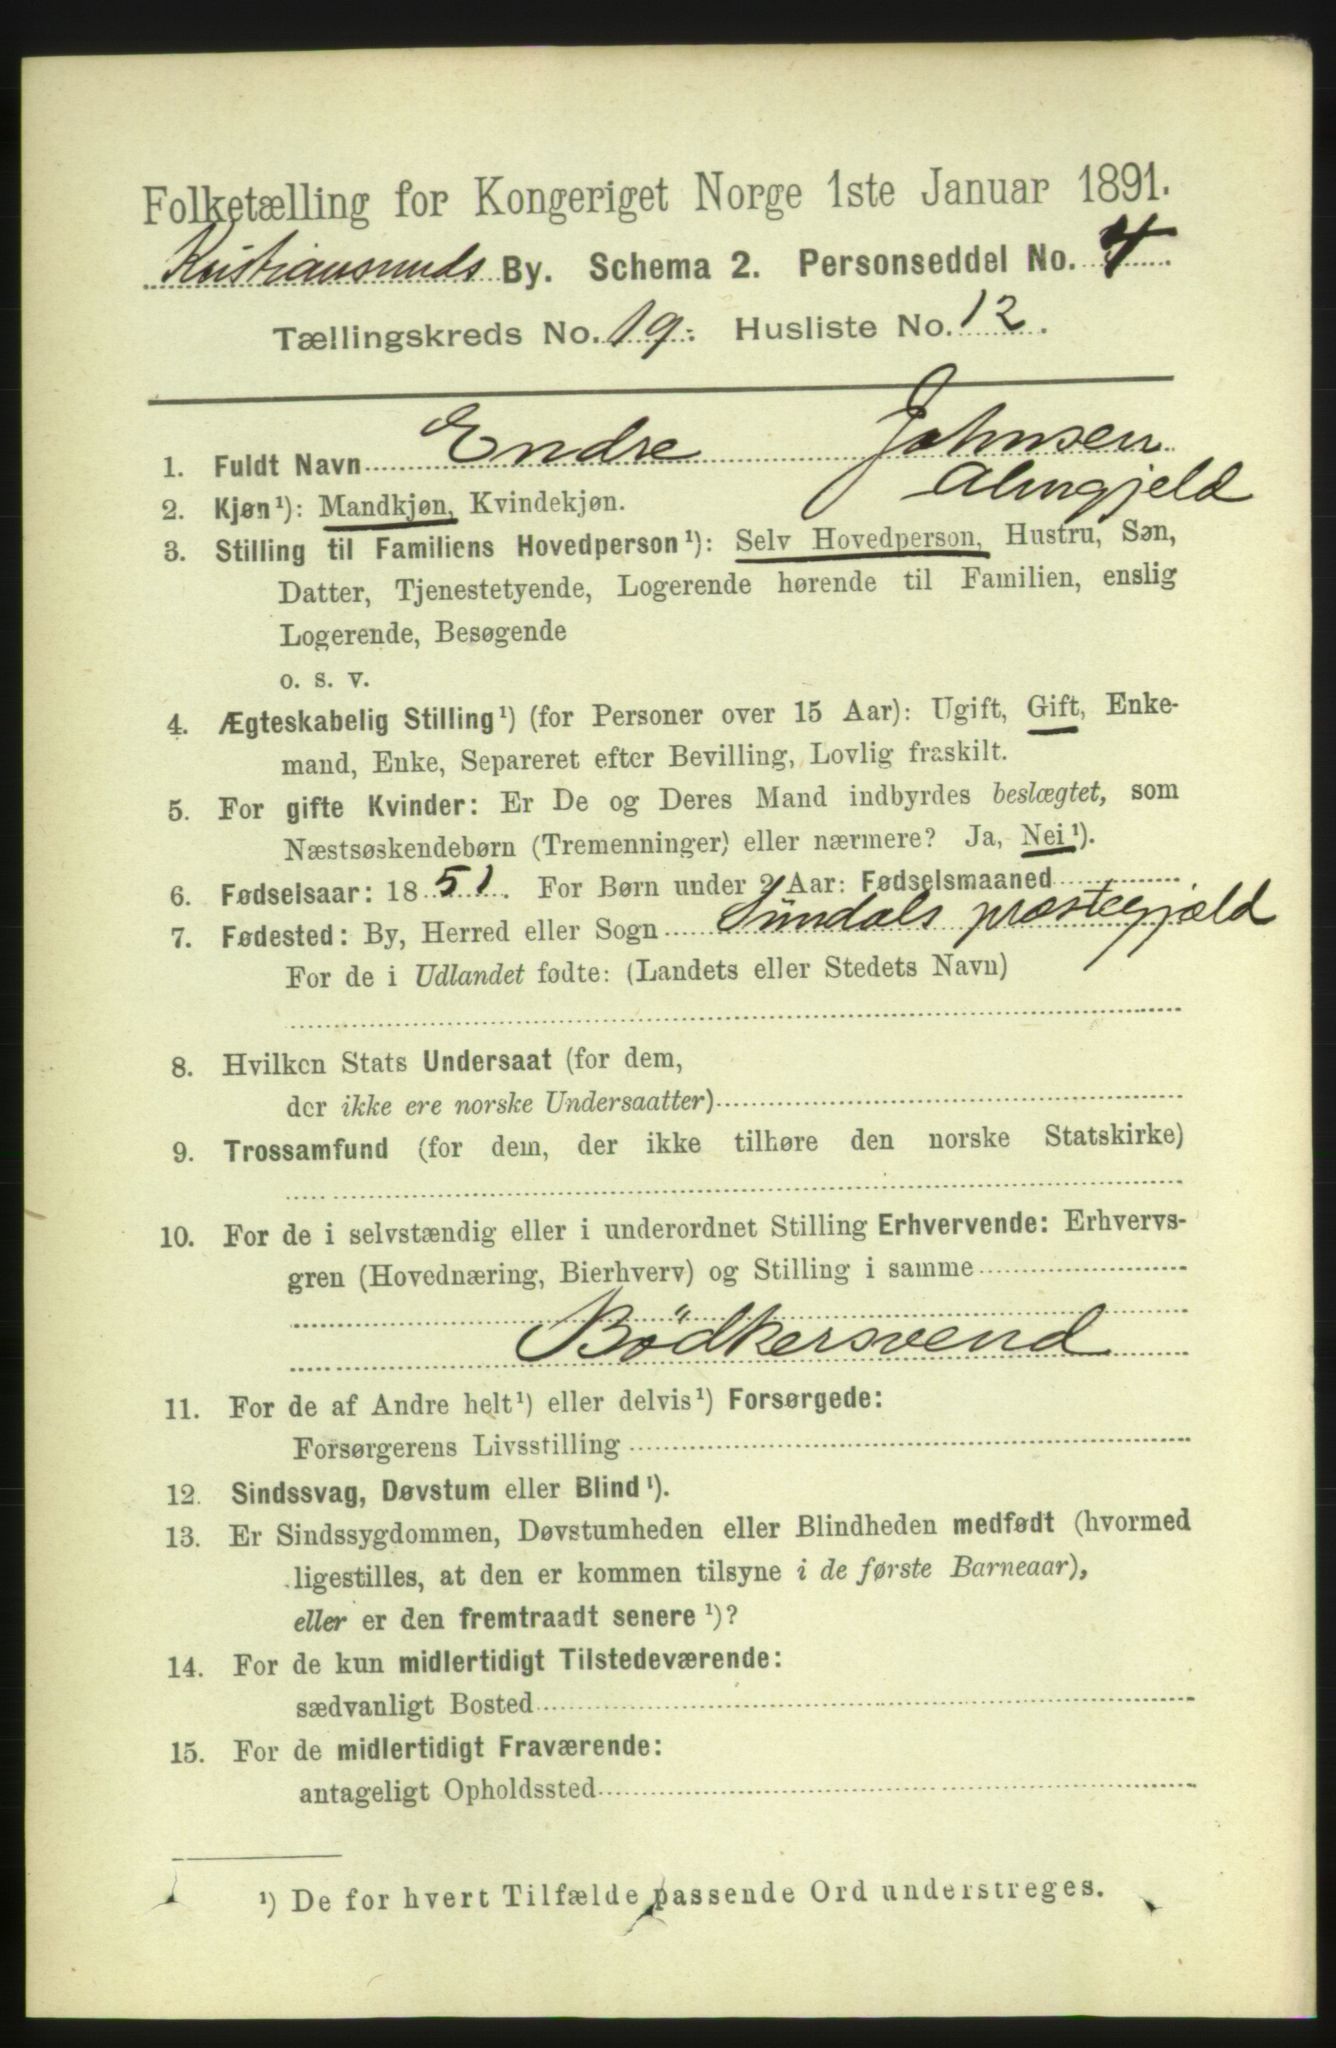 Folketælling for Kongeriget Norge 1ste Januar 1891.
Kristiansunds By. Schema 2. Personseddel No. 4
Tællingskreds No. 19. Husliste No. 12.
1. Fuldt Navn Endre Johnsen
Almgjeld
2. Kjøn¹): Mandkjøn, Kvindekjøn.
3. Stilling til Familiens Hovedperson¹): Selv Hovedperson, Hustru, Søn,
Datter, Tjenestetyende, Logerende hørende til Familien, enslig
Logerende, Besøgende
o. s. v.
4. Ægteskabelig Stilling¹) (for Personer over 15 Aar): Ugift, Gift, Enke-
mand, Enke, Separeret efter Bevilling, Lovlig fraskilt.
5. For gifte Kvinder: Er De og Deres Mand indbyrdes beslægtet, som
Næstsøskendebørn (Tremenninger) eller nærmere? Ja, Nei¹).
6. Fødselsaar: 1851. For Børn under 2 Aar: Fødselsmaaned
7. Fødested: By, Herred eller Sogn Sundals præstegjæld
For de i Udlandet fødte: (Landets eller Stedets Navn)
8. Hvilken Stats Undersaat (for dem,
der ikke ere norske Undersaatter)
9. Trossamfund (for dem, der ikke tilhøre den norske Statskirke)
10. For de i selvstændig eller i underordnet Stilling Erhvervende: Erhvervs-
gren (Hovednæring, Bierhverv) og Stilling i samme
Bødkersvend
11. For de af Andre helt¹) eller delvis¹) Forsørgede:
Forsørgerens Livsstilling
12. Sindssvag, Døvstum eller Blind¹).
13. Er Sindssygdommen, Døvstumheden eller Blindheden medfødt (hvormed
ligestilles, at den er kommen tilsyne i de første Barneaar),
eller er den fremtraadt senere¹)?
14. For de kun midlertidigt Tilstedeværende:
sædvanligt Bosted
15. For de midlertidigt Fraværende:
antageligt Opholdssted
¹) De for hvert Tilfælde passende Ord understreges.